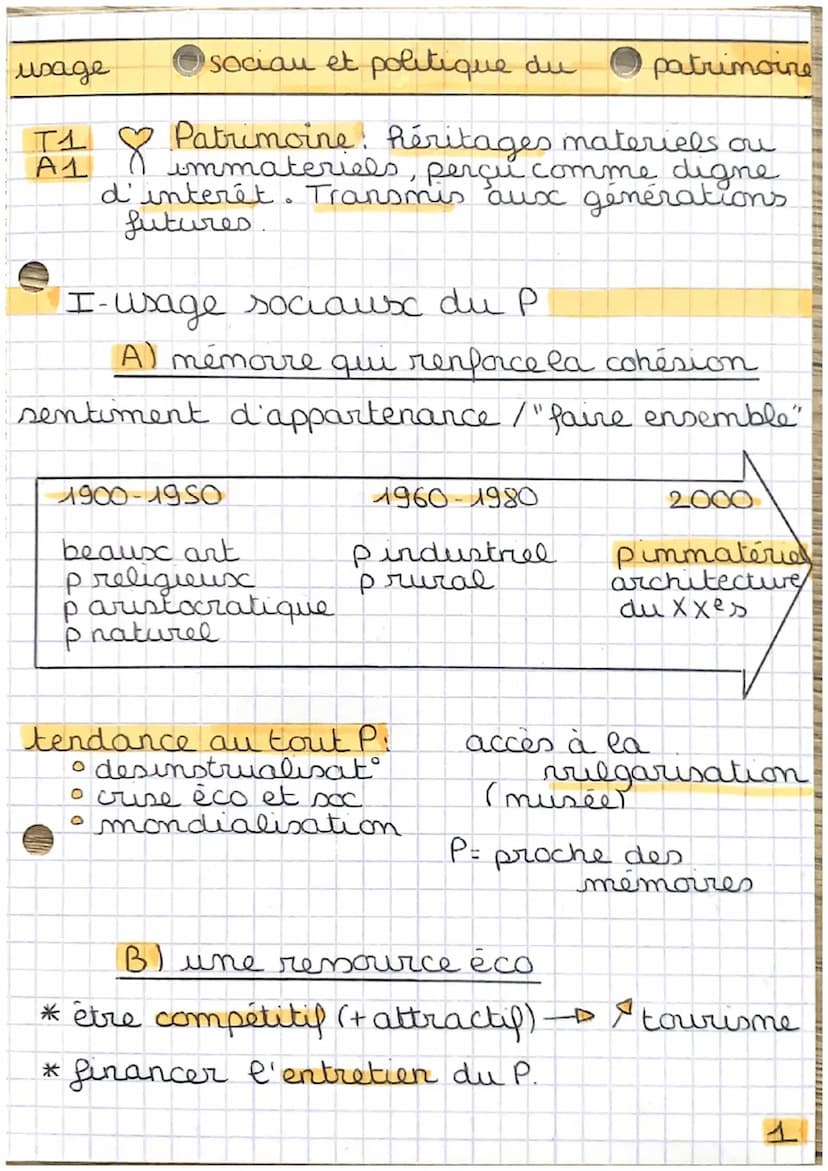 usage sociau et politique du patrimoine
T1 Patrimoine: héritages materiels ou
A1 immateriels, perçu comme digne
d'interêt. Transmis aux générations
futures.
I-usage sociaux du P
A) mémoire qui renforce la cohésion
sentiment d'appartenance / "faire ensemble"
1900-1950 1960-1980 2000
beaux art p industriel p immatériel
p religieux p rural architecture
p aristocratique du XXes
p naturel
tendance au tout P: accès à la
desinstrualisat° vulgarisation
crise éco et soc (musée)
mondialisation
P= proche des
mémoires
B) une ressource éco
* être compétitif (+ attractif) → ↗ tourisme
* financer l'entretien du P.
1